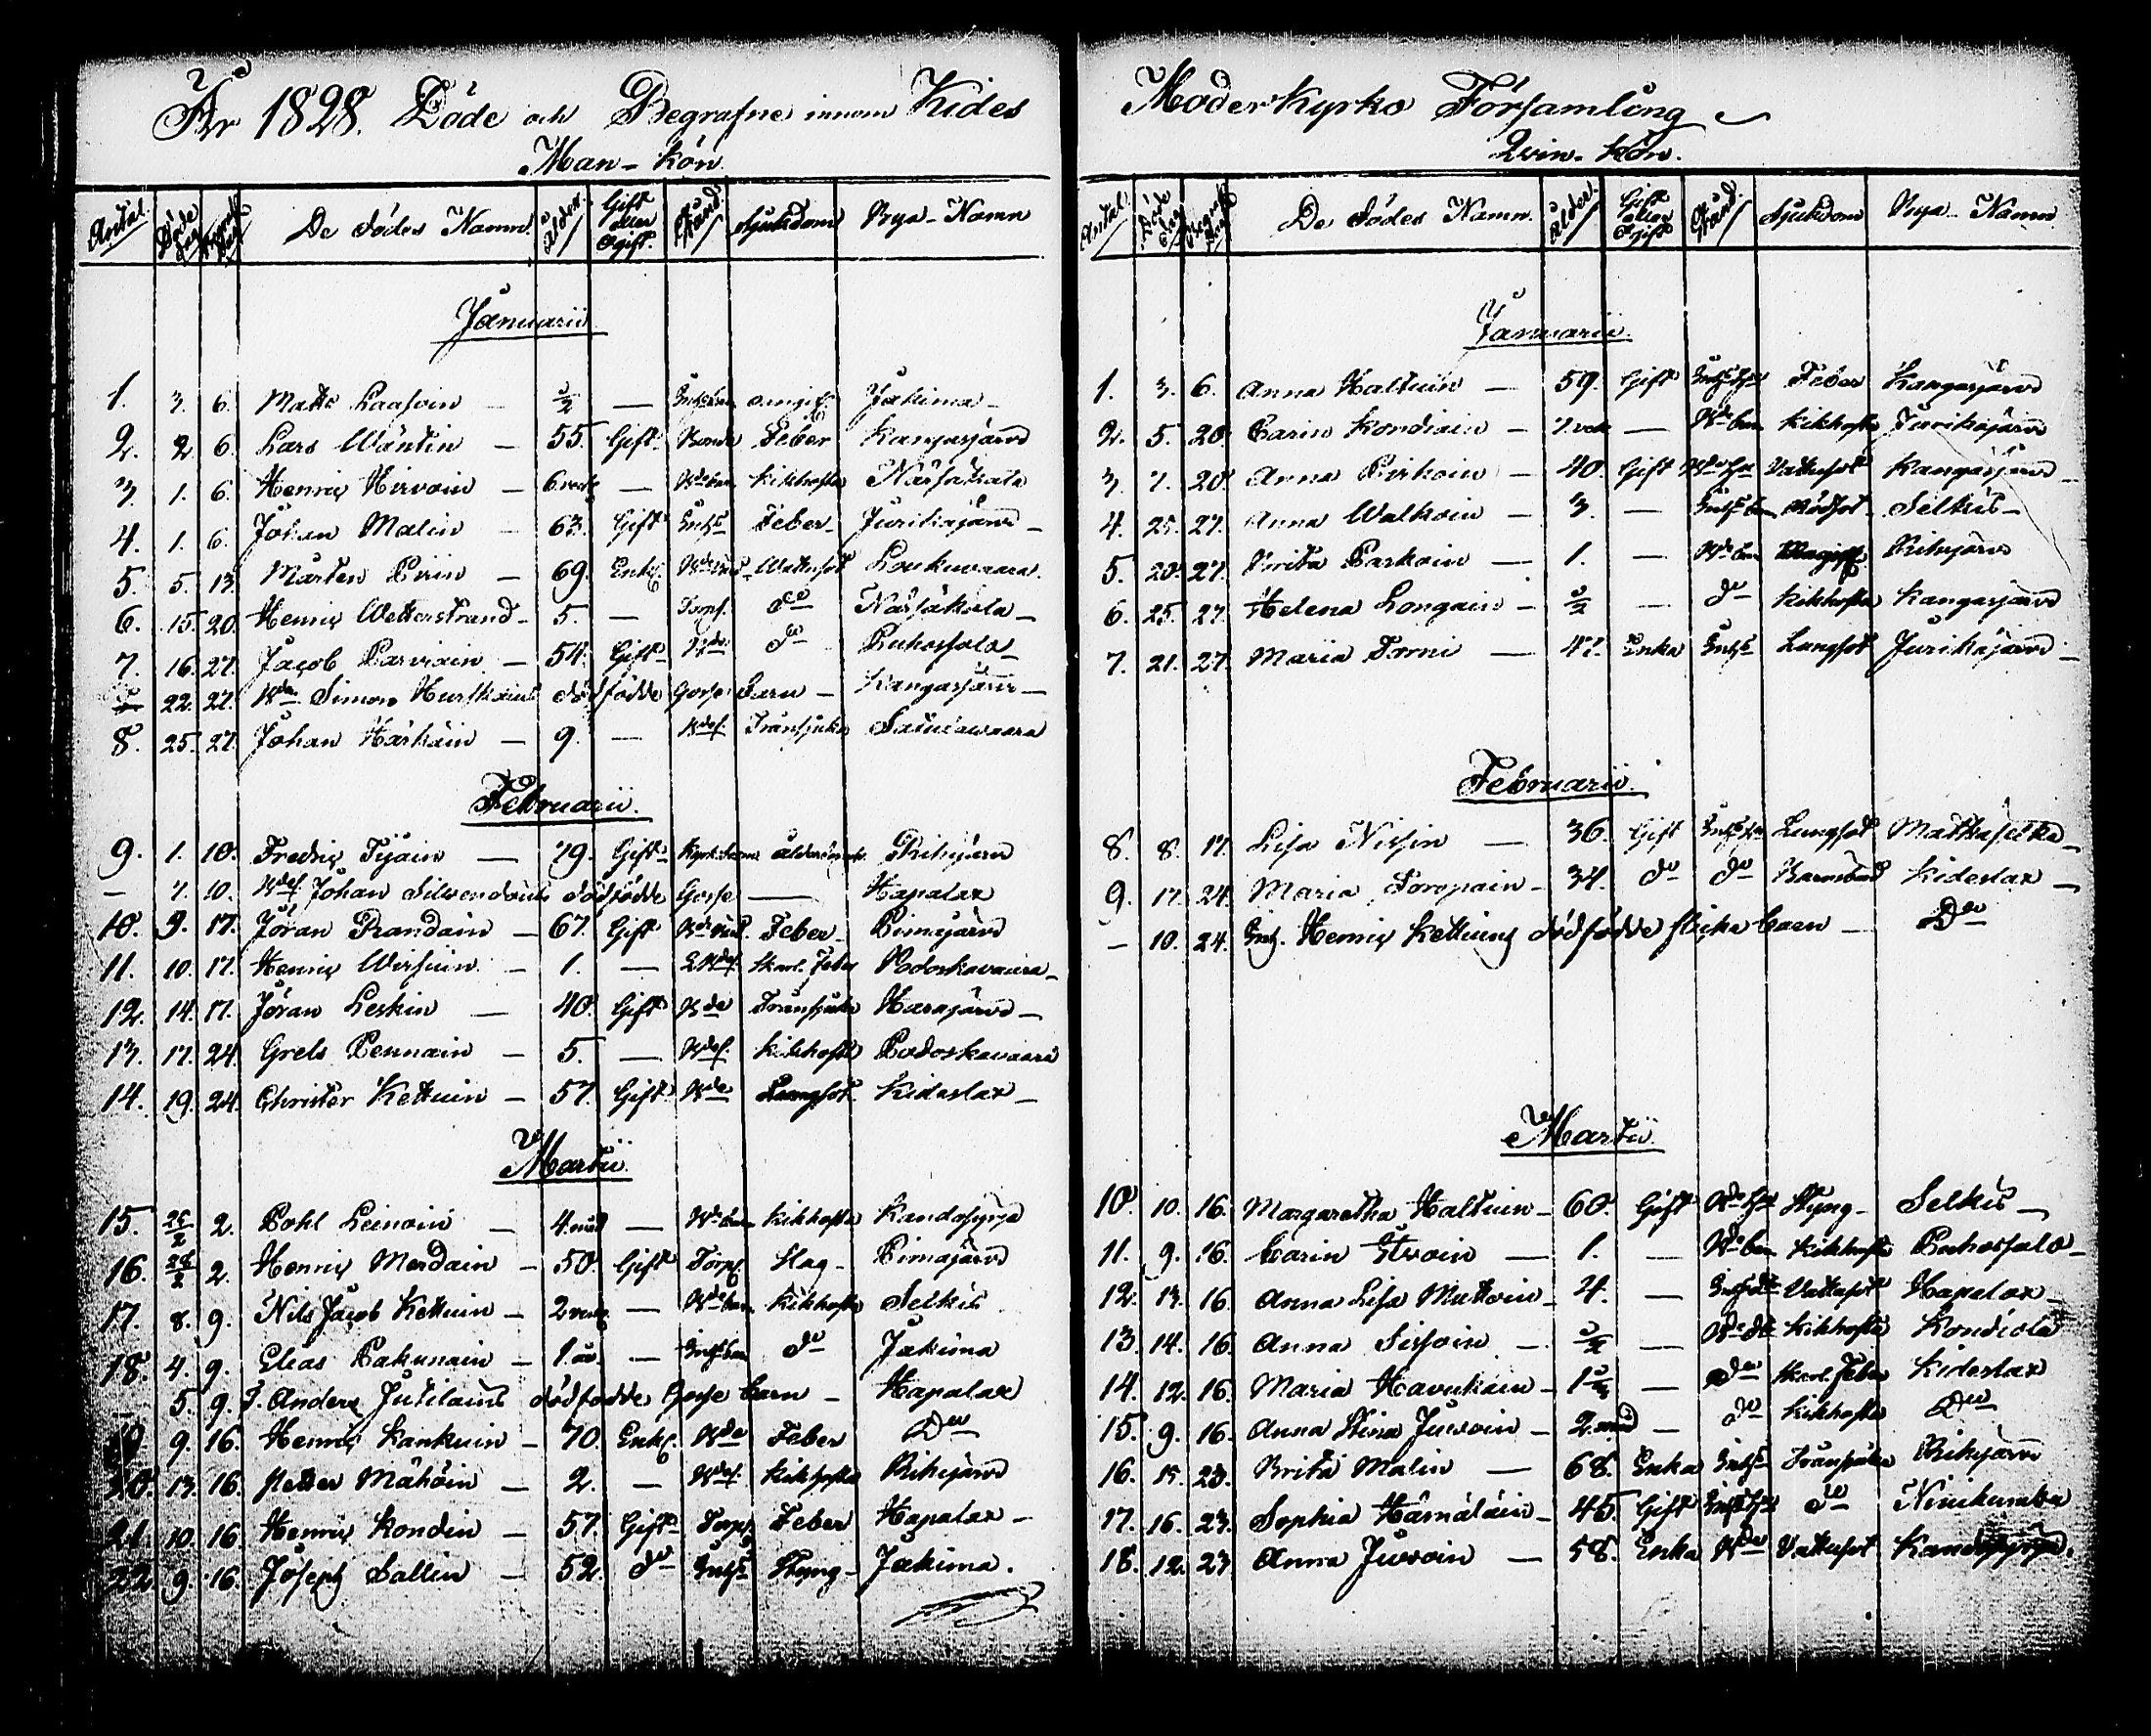 År 1828. Döde och Begrafne innom Kides
Man-kön.
Antal. Döde dag Begraf. dag De dödes Namn. Ålder. Gift eller Ogift. Stånd. Sjukdom Bya-Namn
Januarii
1. 3. 6. Matts Laasoin — ½ — Jakima
2. 2 6. Lars Wäntin — 55. Gift Bonde Feber Kangasjärvi
3. 1. 6. Henric Hirvoin — 6 veck — Bde barn Kikhosta Närsäkala
4. 1. 6. Johan Malin — 63. Gift Inhs Feber Jurikajärvi
5. 5. 13. Mårten Pirin — 69. Enkl. Wattusot Loukuvaara
6. 15. 20. Henric Wetterstrand 5. — Torpf. do Närsäkala
7. 16. 27. Jacob Parviain — 54. Gift Bde do Puhossalo
22. 27. Bde Simon Hurskains dödfödde Gosse Barn — Kangasjärvi
8. 25. 27. Johan Härkäin — 9. — Bdes. Tränsjuka
Februarii.
9. 1. 10. Fredric Tijain — 79. Gift Rihijärvi
— 7. 10. Bdes Johan Silvendoins dödfödde Gosse — Hapalax
10. 9. 17. Jöran Prandain — 67. Gift Feber Pirnajärvi
11. 10. 17. Henric Wirsuin — 1. — Skarl. Feber Podoskavaara
12. 14. 17. Jöran Leskin — 40. Gift Bde Tränsjuka Harajärvi
13. 17. 24. Grels Pennain — 5. — Bdes. Kikhosta Podoskavaara
14. 19. 24. Christer Kettuin — 57. Gift Bde Lungsot Kideslax
Martii
15. 26/2 2. Pohl Leinoin — 4. mån — Bde barn Kikhosta Kandosyrja
16. 28/2 2. Henric Merdain — 50. Gift Torp. Slag Pirnajärvi
17. 8. 9. Nils Jacob Kettuin — 2 veck — Bde barn Kikhosta Selkis
18. 4. 9. Elias Pakunain — 1. — Inhs barn do Jakima
— 5. 9. J. Anders Jutilains dödfödde Gosse barn — Hapalax
19. 9. 16. Henric Kankuin — 70. Enkl. Bde Feber Do
20. 13. 16. Petter Mähöin — 2. — Bdes. Kikhosta Rihijärvi
21. 10. 16. Henric Kondin — 57. Gift Torp. Feber Hapalax
22. 9. 16. Joseph Sallin — 52. do Inhs Styng Jakima.
Moderkyrko Församling
Qvin-Kön.
Antal. Döde dag Begraf. dag De dödes Namn. Ålder. Gift eller Ogift Stånd. Sjukdom Bya-Namn
Januarii.
1. 3. 6. Anna Haltuin — 59. Gift Inhs hu Feber Kangasjärvi
2. 5. 20. Carin Kondiain — 7. veck — Bde barn Kikhosta Jurikajärvi
3. 7. 20. Anna Pirhoin — 40. Gift Bde hu Vattusot Kangasjärvi
4. 25. 27. Anna Walkoin — 3. — Inhs barn Rödsot Selkis
5. 20. 27. Brita Parkoin — 1. — Bde barn Rihijärvi
6. 25. 27. Helena Longain — ½ — do Kikhosta Kangasjärvi
7. 21. 27. Maria Torni — 47. Enka Inhs Lungsot Jurikajärvi
Februarii.
8. 8. 17. Lisa Nissin — 36. Gift Inhs hu Lungsot Matkaselka
9. 17. 24. Maria Toropain — 34. do do Barnsbörd Kideslax
— 10. 24. Inh. Henric Kettuins dödfödde flicka barn — Do
Martii.
10. 10. 16. Margaretha Haltuin — 60. Gift Bde hu Styng Selkis
11. 9. 16. Carin Itvoin — 1. — Bde barn Kikhosta Puhossalo
12. 13. 16. Anna Lisa Muttoin — 4. — Vattusot Hapalax
13. 14. 16. Anna Sissoin — — Kikhosta Kondiola
14. 12. 16. Maria Havukain — — do Skarl. Feber Kideslax
15. 9. 16. Anna Stina Juvoin — 2. mån — do Kikhosta Do
16. 15. 23. Brita Malin — 68. Enka Inhs Tränsjuka Rihijärvi
17. 16. 23. Sophia Hämäläin — 45. Gift Inhs hu do Niinikumbu
18. 12. 23 Anna Juvoin — 58. Enka Bde Vattusot Kandosyrja.